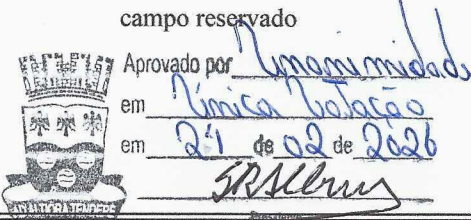 campo reservado
Aprovado por Unanimidade
em Única Votação
em 24 de 02 de 2026
Presidente